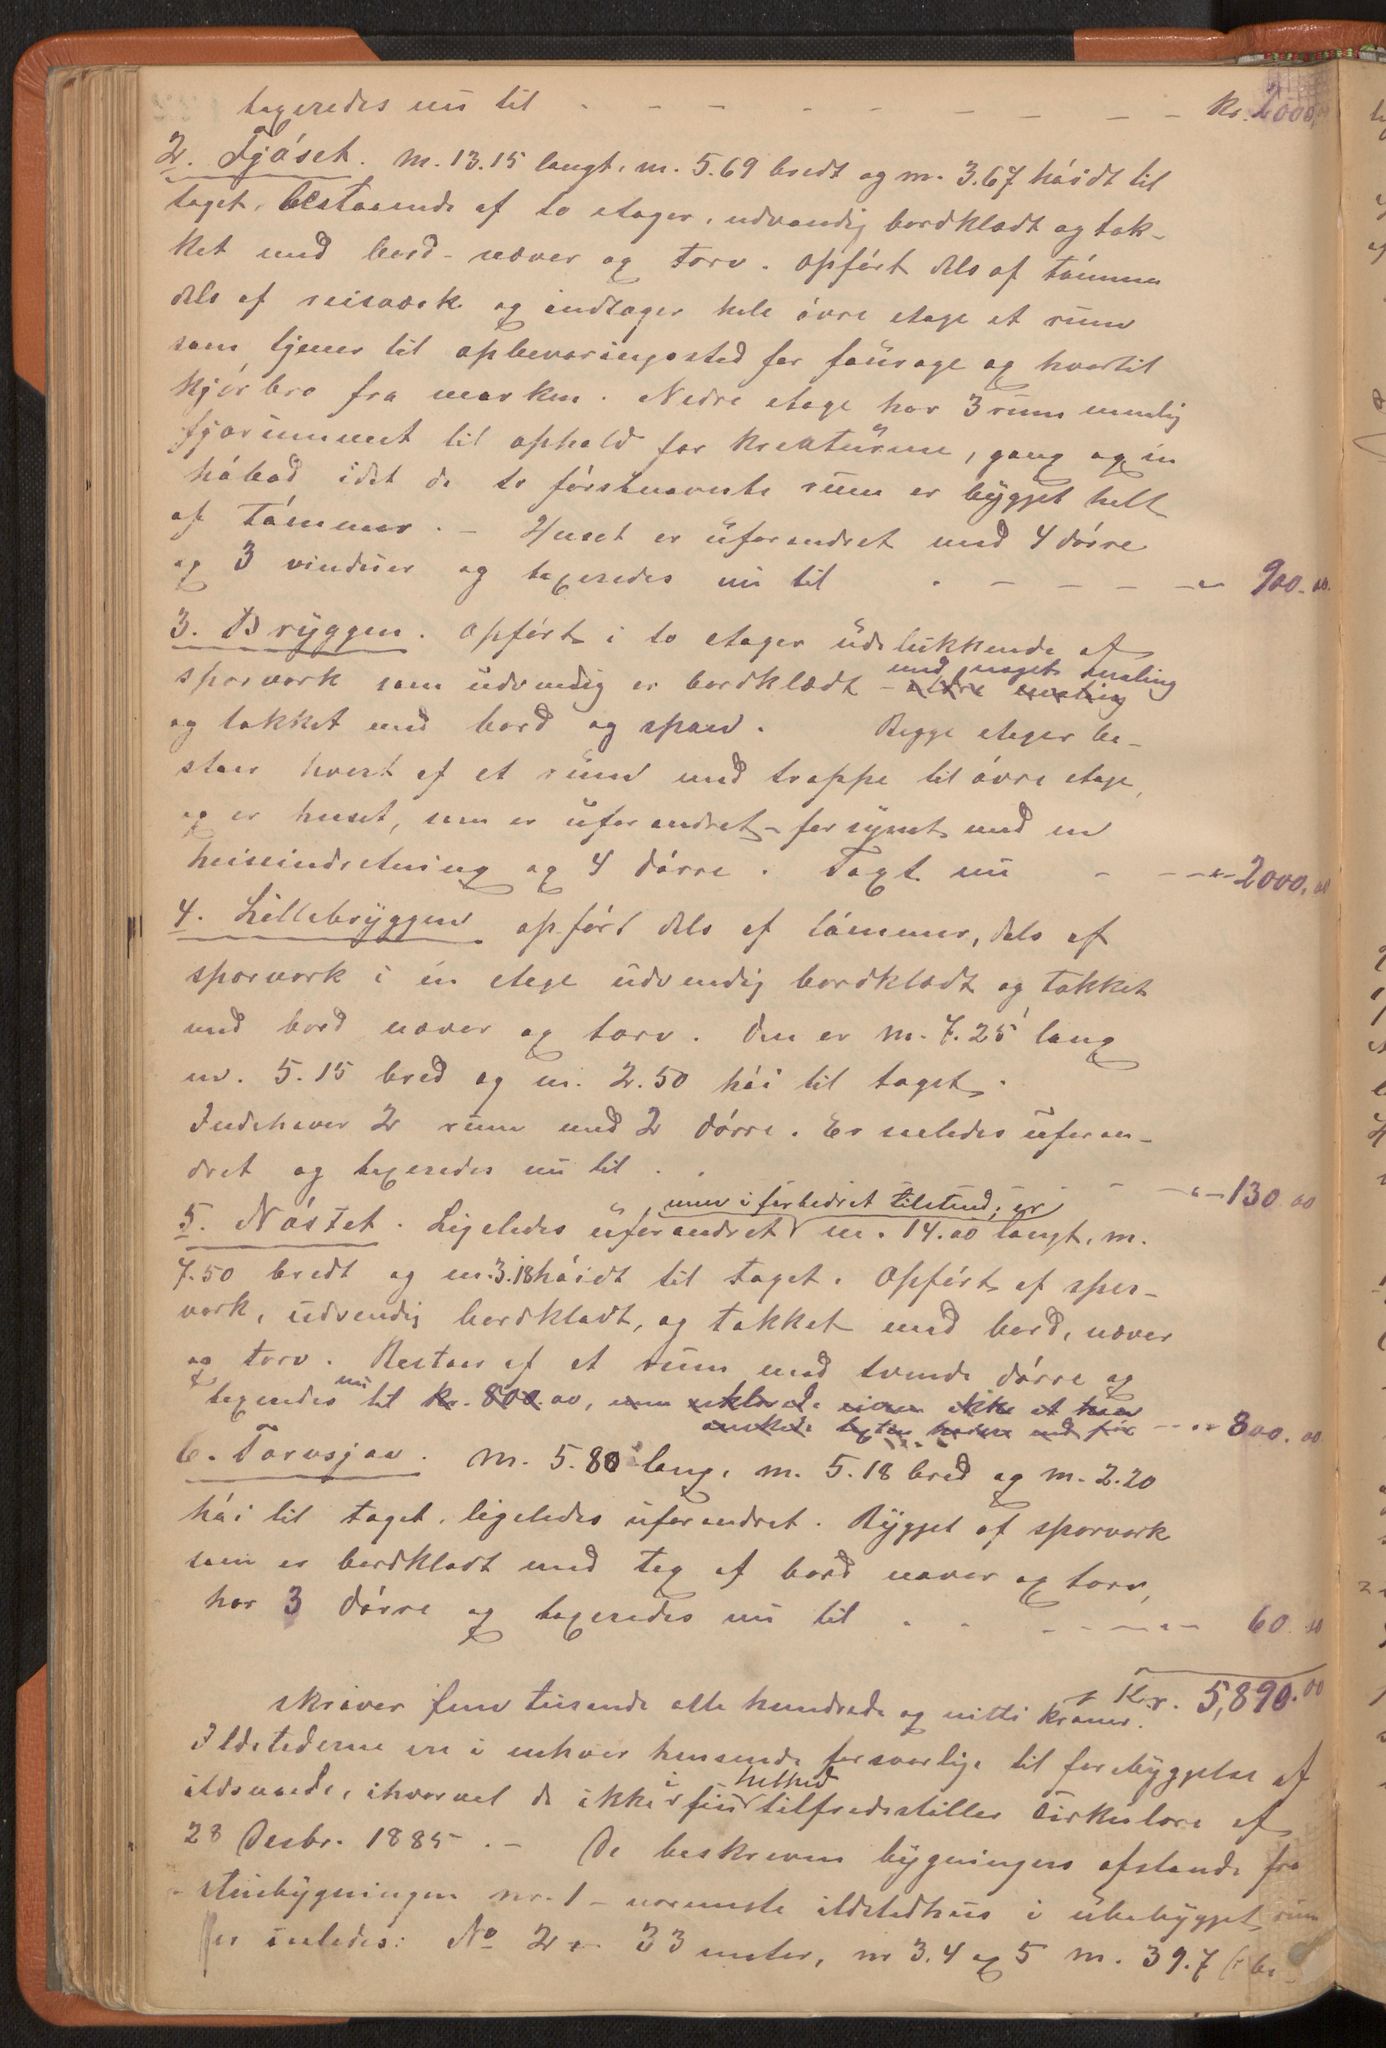 taxeredes nu til - - - - - - - - Kr. 2000,00
2. Fjóset. m. 13.15 langt, m. 5.69 bredt og m. 3.67 hóidt til
taget, bestaaende af to etager, udvendig bordklædt og tæk-
ket med bord - næver og torv. Opfórt dels af tómmer
dels af reisværk og indtager hele óvre etage et rum
som tjener til opbevaringssted for fourage og hvortil
kjórbro fra marken. Nedre etage har 3 rum nemlig
fjósrummet til ophold for kreaturene, gang og en
hóbod idet de to fórstnævnte rum er bygget helt
af tómmer. - Huset er uforandret med 4 dórre
og 3 vinduer og taxeredes nu til - - - - " - 900.00
3. Bryggen. Opfórt i to etager udelukkende af
sporvork som udvendig er bordklædt - med noget maling
og tækket med bord og spaan. Begge etager be-
staar hvert af et rum med trappe til óvre etage,
og er huset, som er uforandret - forsynet med en
heiseindretning og 4 dórre. Taxt nu - - - " - 2000,00
4. Lillebryggen opfórt dels af tómmer, dels af
sporvork i én etage udvendig bordklædt og tækket
med bord næver og torv. Den er m. 7.25 lang
m. 5.15 bred og m. 2.50 hói til taget.
Indehaver 2 rum med 2 dórre. Er ligeledes uforan-
dret og taxeredes nu til . . - - - " - 130.00
5. Nóstet. Ligeledes uforandret, men i forbedret tilstand; er m. 14.00 langt, m.
7.50 bredt og m. 3.18 hóidt til taget. Opfórt af spor-
vork, udvendig bordklædt, og tækket med bord, næver
og torv. Bestaar af et rum med tvende dórre og
taxeredes nu til kr. 800.00, - - " - 800.00
6. Torvsjaa. m. 5.80 lang, m. 5.18 bred og m. 2.20
hói til taget, ligeledes uforandret. Bygget af sporvork
som er bordklædt med tag af bord næver og torv,
har 3 dórre og taxeredes nu til . . - - - " - 60.00
skriver fem tusende otte hundrede og nitti kroner. Kr. 5,890.00
Ildstederne er i enhver henseende forsvarlige til forebyggelse af
ildsvaade, ihvorvel de ikke i sin helhed tilfredsstiller Cirkulære af
28 Desbr. 1885. - De beskrevne bygningers afstande fra
stuebygningen nr. 1 - nærmeste ildstedhus i ubebygget rum
er saaledes: No 2 - 33 meter, nr 3.4 og 5 m. 39.7 (: be-